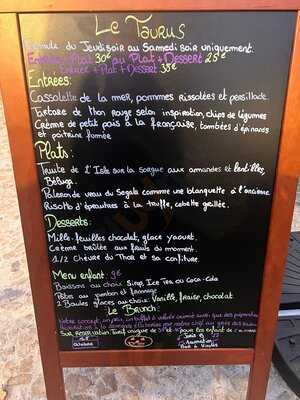 Le Taurus
Formule du Jeudi soir au Samedi soir uniquement.
Entrée + Plat 30€ ou Plat + Dessert 25€
Entrée + Plat + Dessert 35€
Entrées:
Cassolette de la mer, pommes rissolées et persillade.
Tartare de thon rouge selon inspiration, chips de légumes
Crème de petit pois à la française, tombées d'épinards
et poitrine fumée
Plats:
Truite de L'Isle sur la sorgue aux amandes et lentilles
Béluga.
Paleron de veau du Segala comme une blanquette à l'ancienne
Risotto d'épeautres à la truffe, cebette grillée.
Desserts:
Mille-feuilles chocolat, glace yaourt.
Crème brûlée aux fruits du moment.
1/2 Chèvre du Thor et sa confiture.
Menu enfant: 9€
Boissons au choix Sirop, Ice tea ou Coca-Cola
Pâtes au jambon et fromage
2 Boules glaces au choix: Vanille, fraise, chocolat
Le Brunch
Sur Réservation
Octobre